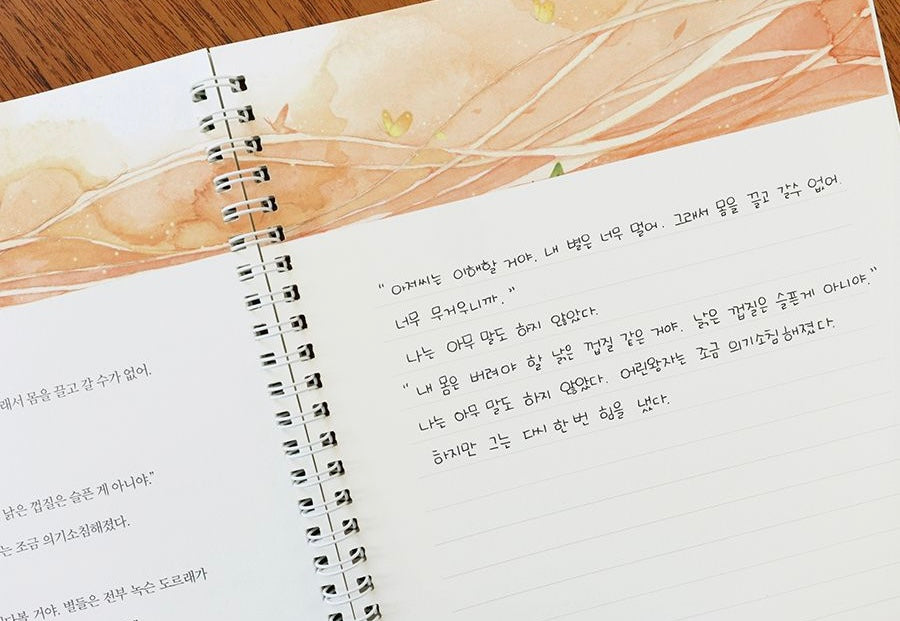 래서 몸을 끌고 갈 수가 없어.
낡은 껍질은 슬픈 게 아니야."
는 조금 의기소침해졌다.
거야. 별들은 전부 녹슨 도르래가
" 아저씨는 이해할 거야. 내 별은 너무 멀어. 그래서 몸을 끌고 갈수 없어.
너무 무거우니까. "
나는 아무 말도 하지 않았다.
" 내 몸은 버려야 할 낡은 껍질 같은 거야. 낡은 껍질은 슬픈게 아니야."
나는 아무 말도 하지 않았다. 어린왕자는 조금 의기소침해졌다.
하지만 그는 다시 한 번 힘을 냈다.